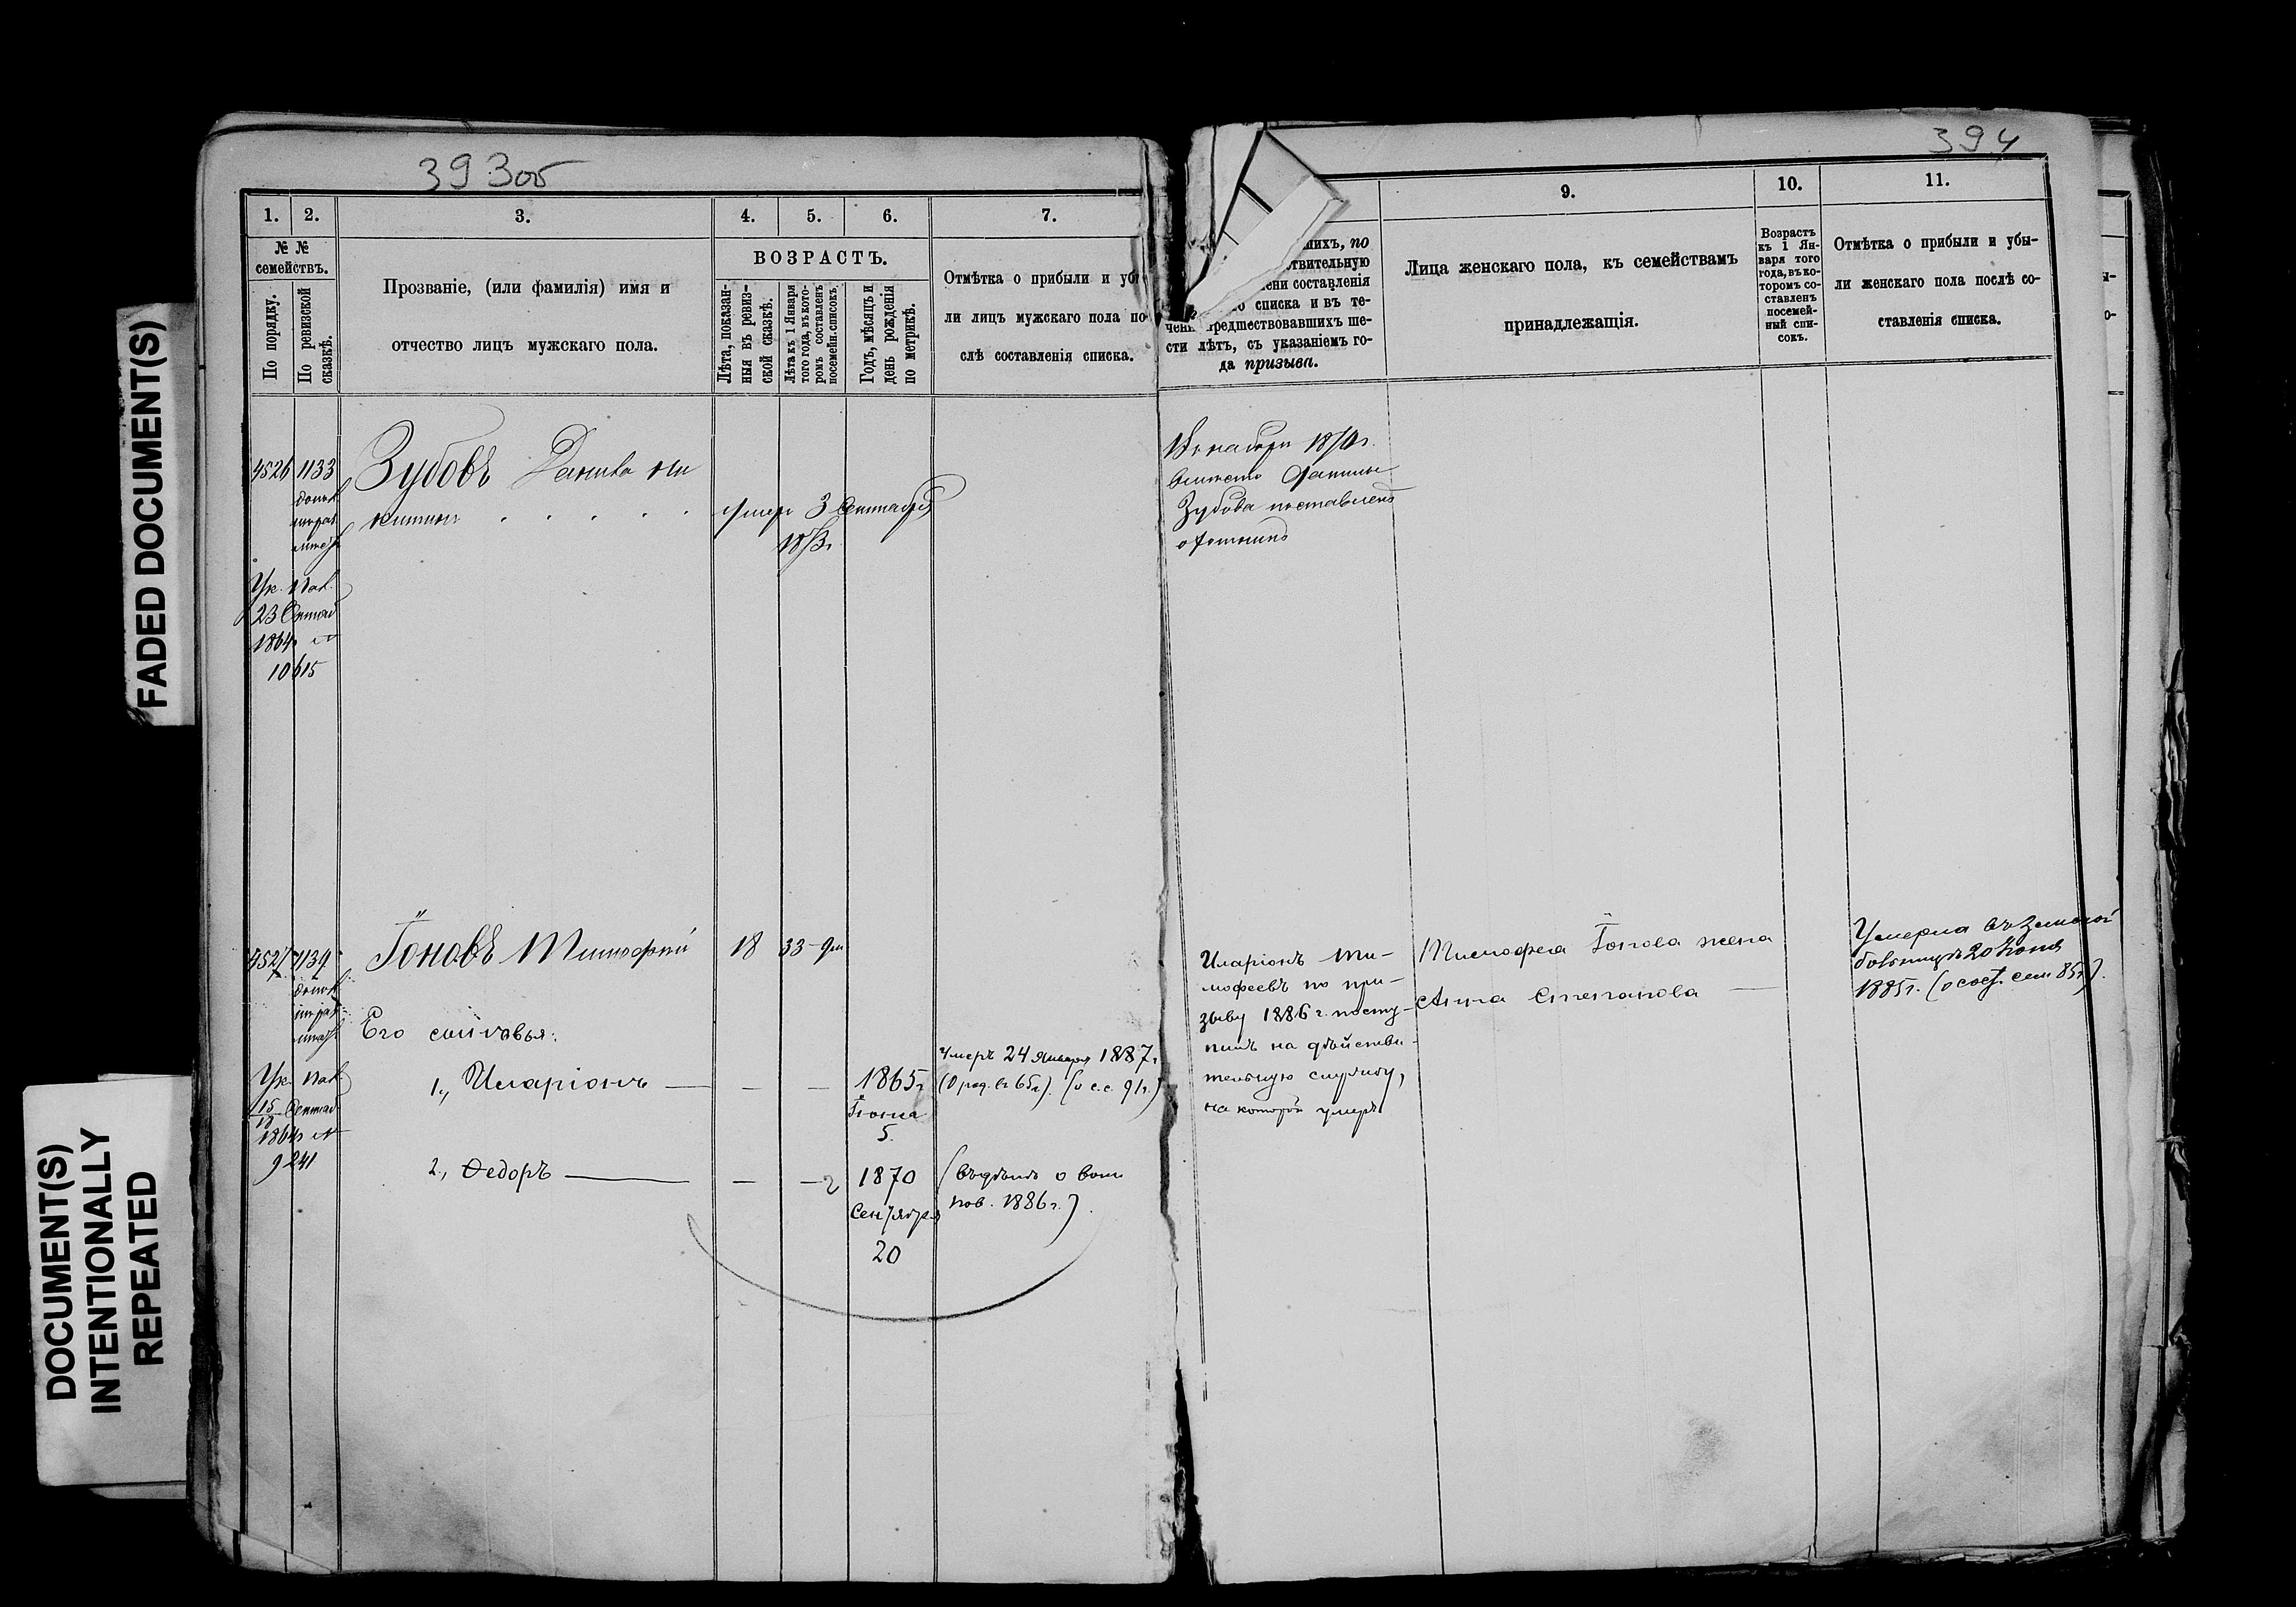 FADED DOCUMENT(S)
DOCUMENT(S)
INTENTIONALLY
REPEATED
393об
1.
2.
3.
4.
5.
6.
7.
№ №
семействъ.
По порядку.
По ревизской
сказкѣ.
Прозваніе, (или фамилія) имя и
отчество лицъ мужскаго пола.
ВОЗРАСТЪ.
Лѣта, показан-
ныя въ ревиз-
ской сказкѣ.
Лѣта къ 1 Января
того года, въ кото-
ромъ составленъ
посемейн. список.
Годъ, мѣсяцъ и
день рожденія
по метрикѣ.
Отмѣтка о прибыли и
ли лицъ мужскаго пола по
слѣ составленія списка.
4526 1133
Зубовъ Данило Ни
китинъ . . . . .
умеръ 3 Сентября
Ук. Пал.
23 Сентяб
1864 №
10615
4527 1134
Іоновъ Тимофей 18 33
Его сыновья:
1., Иларіонъ — — — 1865г
Іюня
5.
Умеръ 24 Января 1887г
(О род. въ 65г.). (о с.с. 91г.)
Ук. Пал.
15 Сентяб
18
1864 №
9241
2., Федоръ — — — 1870
Сентября
20
(вѣдом о воин
пов. 1886г.)
394
9.
10.
11.
шихъ, по
твительную
ени составленія
списка и въ те-
чен редшествовавшихъ ше-
сти лѣтъ, съ указаніемъ го-
да призыва.
Лица женскаго пола, къ семействамъ
принадлежащія.
Возрастъ
къ 1 Ян-
варя того
года, въ ко-
торомъ со-
ставленъ
посемей-
ный спи-
сокъ.
Отмѣтка о прибыли и убы-
ли женскаго пола послѣ со-
ставленія списка.
вмѣсто Данилы
Зубова поставленъ
охотникъ
Иларіонъ Ти-
мофеевъ по при-
зыву 1886 г. посту-
пилъ на дѣйстви-
тельную службу,
на которой умеръ
Тимофея Іонова жена
Анна Степанова —
Умерла въ земской
больницѣ 20 Іюня
1885г. (о сост. сем 85г.).